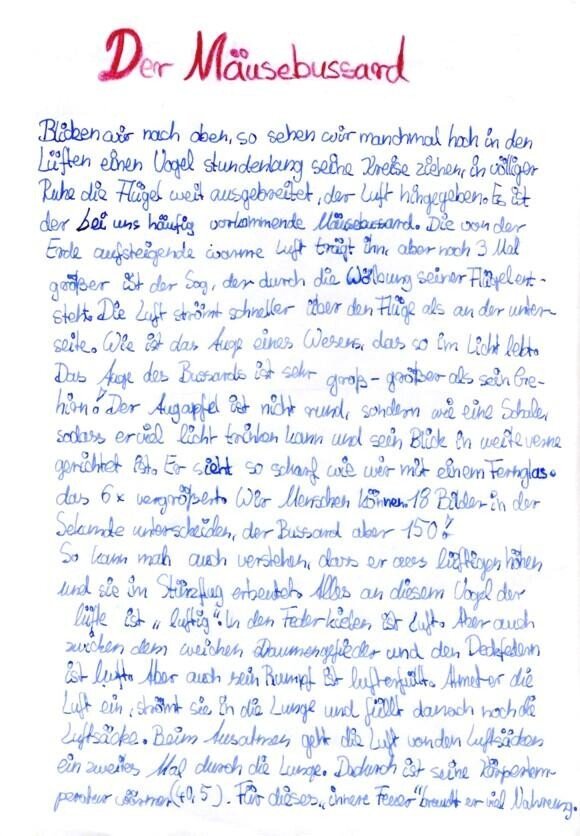 Der Mäusebussard
Blicken wir nach oben, so sehen wir manchmal hoch in den
Lüften einen Vogel stundenlang seine Kreise ziehen, in völliger
Ruhe die Flügel weit ausgebreitet, der Luft hingegeben. Es ist
der bei uns häufig vorkommende Mäusebussard. Die von der
Erde aufsteigende warme Luft trägt ihn, aber noch 3 Mal
größer ist der Sog, der durch die Wölbung seiner Flügel ent-
steht. Die Luft strömt schneller über den Flüge als an der unter-
seite. Wie ist das Auge eines Wesens, das so im Licht lebt.
Das Auge des Bussards ist sehr groß - größer als sein Ge-
hirn! Der Augapfel ist nicht rund, sondern wie eine Schale,
sodass er viel licht trinken kann und sein Blick in weite verne
gerichtet ist. Er sieht so scharf wie wir mit einem Fernglas.
das 6x vergrößert. Wir Menschen können 18 Bilder in der
Sekunde unterscheiden, der Bussard aber 150!
So kann mah auch verstehen, dass er aus lüftigen höhen
und sie im Stürzflug erbeutet. Alles an diesem Vogel der
lüfte ist "luftig". In den Federkielen ist Luft. Aber auch
zwichen dem weichen Daumengefieder und den Deckfedern
ist luft. Aber auch sein Rumpf ist lufterfüllt. Atmet er die
Luft ein, strömt sie in die Lunge und füllt danach noch die
Luftsäcke. Beim Ausatmen geht die Luft von den Luftsäcken
ein zweites Mal durch die Lunge. Dadurch ist seine Körpertem-
peratur wärmer (40,5). Für dieses "innere Feuer" braucht er viel Nahrung.